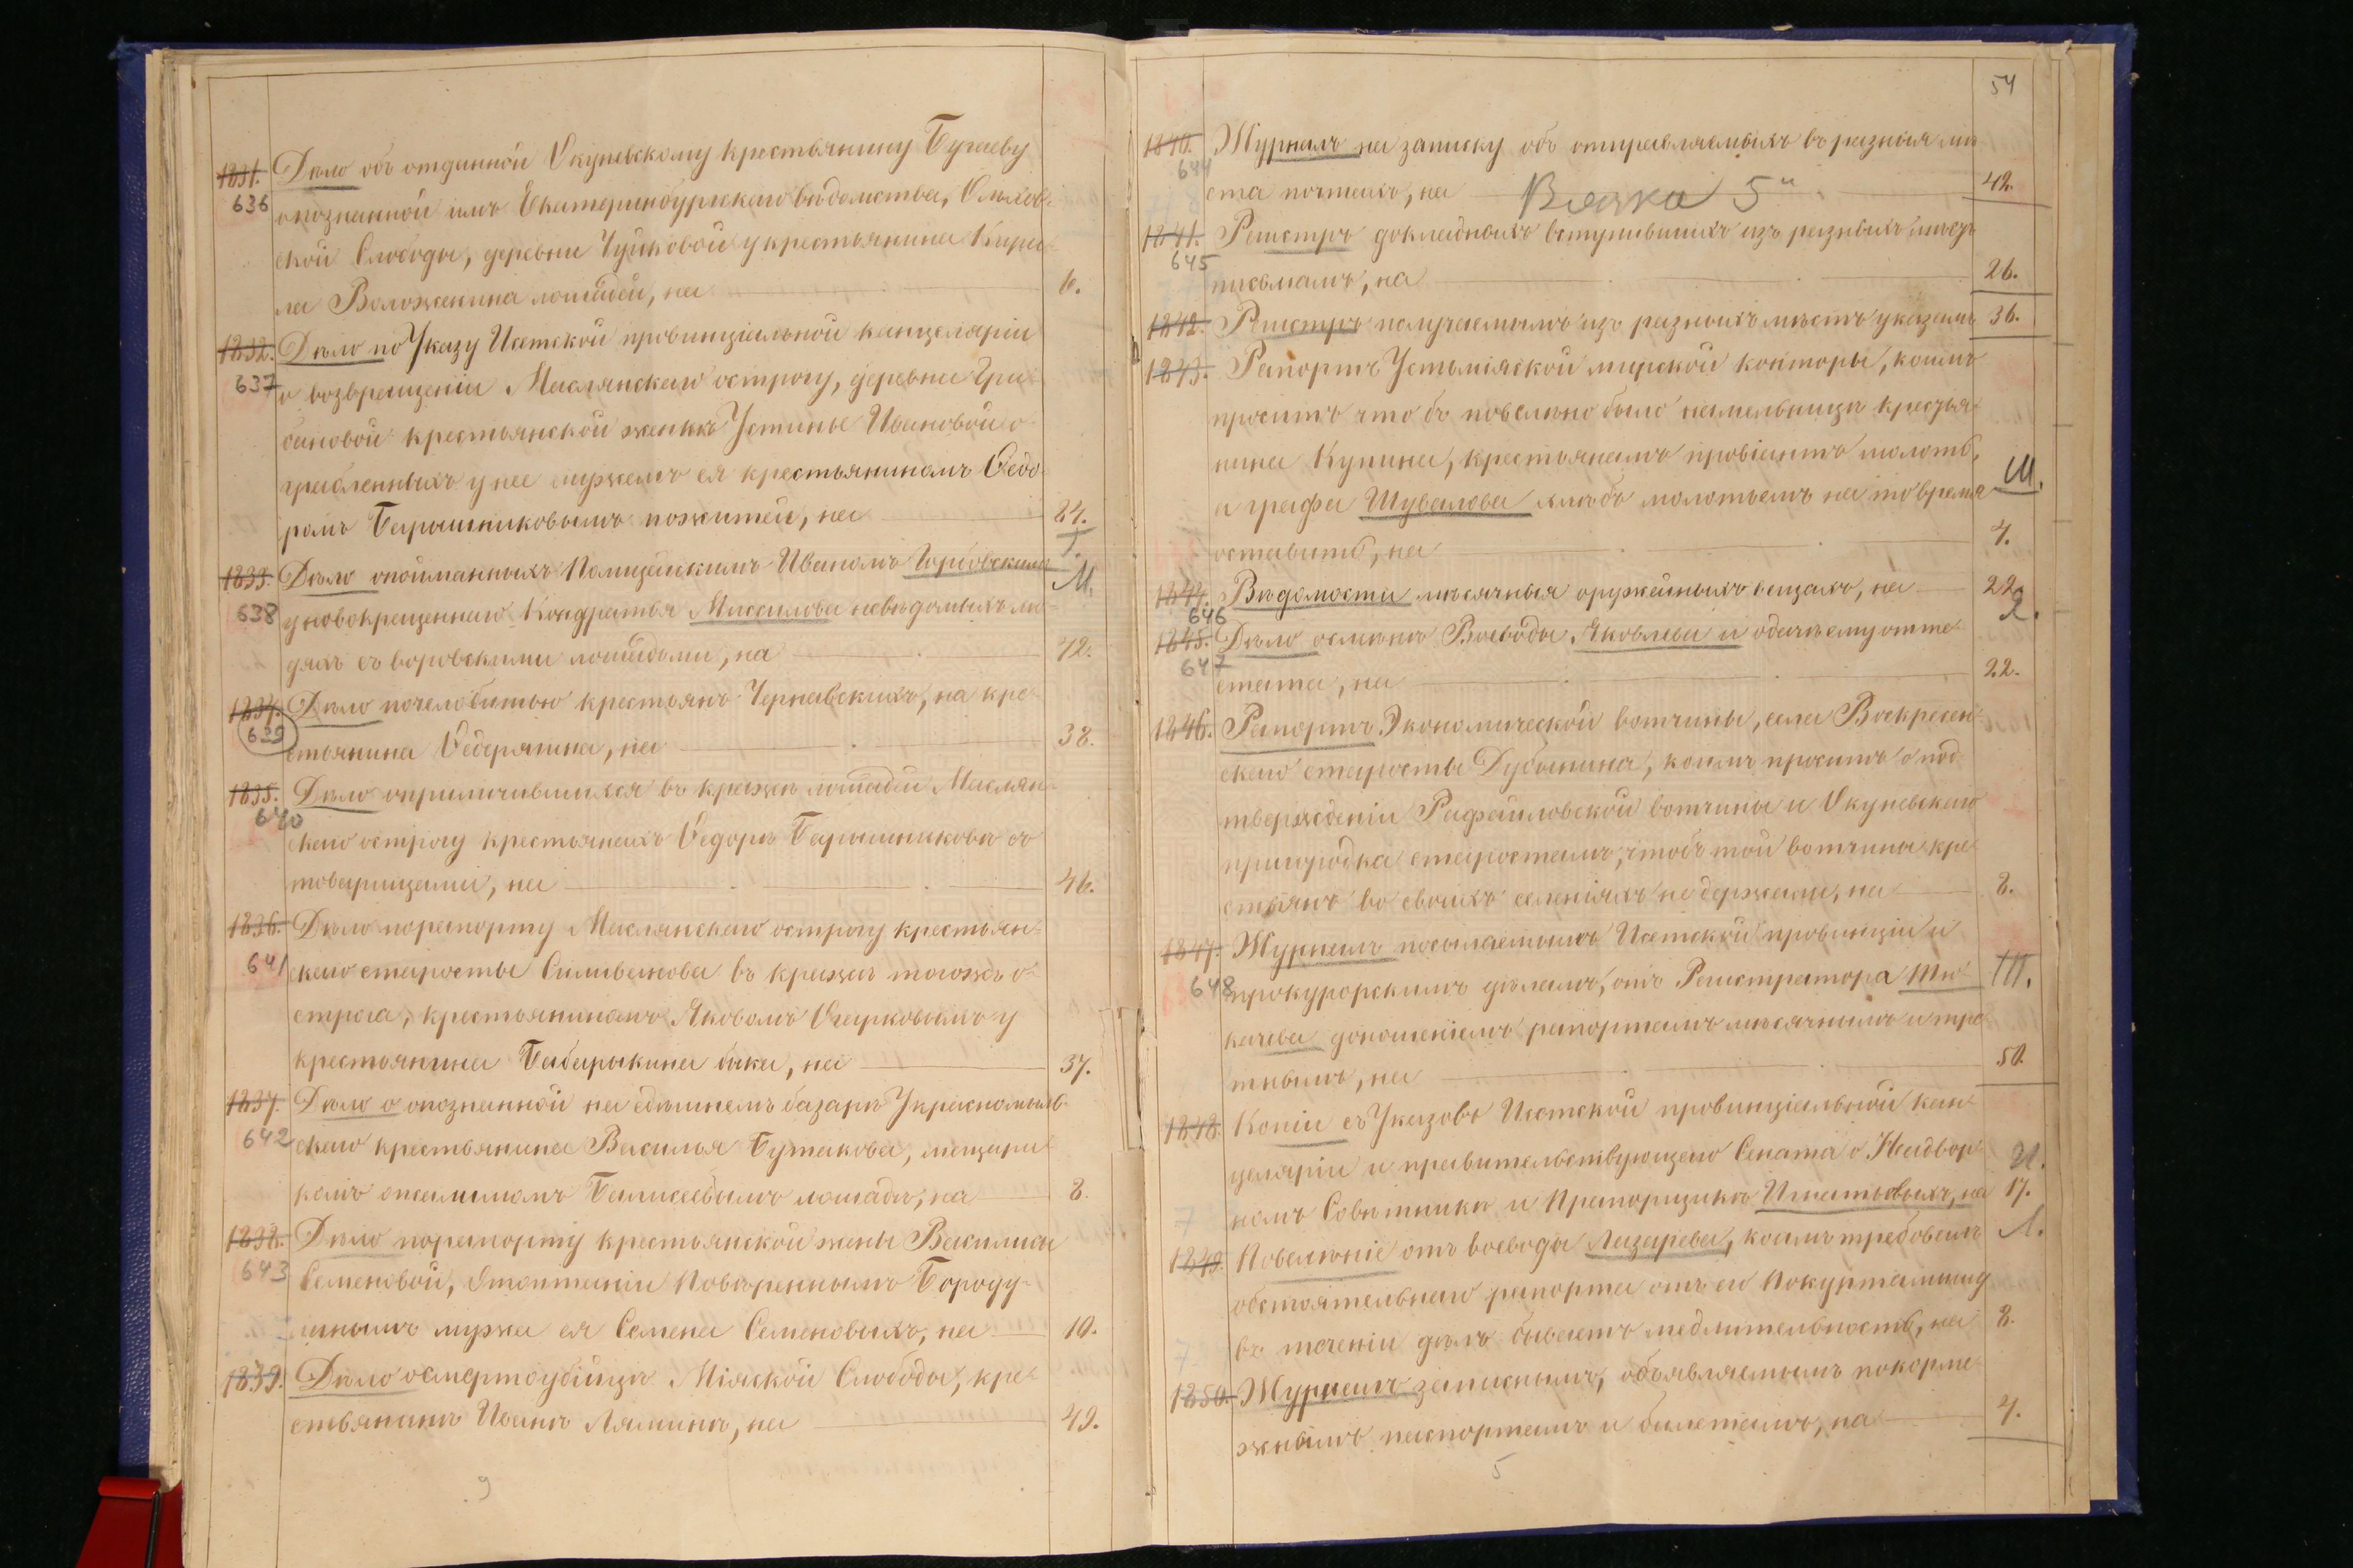 1831. Дѣло объ отданной Окуневскому крестьянину Бугаеву
636 опознанной имъ Екатеринбургскаго вѣдомства,
ской Слободы, деревни Чуйковой у крестьянина Кири-
ла Воложенина лошадей, на 6.
1832. Дѣло по Указу Исетской провинціальной канцеляріи
637 о возвращеніи Маслянскаго острогу, деревни Гри-
бановой крестьянской женкѣ Устинье Ивановой о-
грабленныхъ у нее мужемъ ея крестьяниномъ Ѳедо-
ромъ Барышниковымъ пожитей, на 24.
1833. Дѣло опойманныхъ Полицейскимъ Иваномъ
638 у новокрещеннаго Кондратья невѣдомыхъ лю-
М.
дяхъ съ воровскими лошадьми, на 42.
1834. Дѣло почелобитью крестьянъ Чернавскихъ, на кре-
639 стьянина Ѳедерягина, на 38.
1835. Дѣло оприличившихся въ кражѣ лошадей Маслян-
640 скаго острогу крестьянахъ Ѳедорѣ Барышниковѣ съ
товарищами, на 46.
1836. Дѣло порапорту Маслянскаго острогу крестьян-
641 скаго старосты Силиванова въ кражѣ тогожъ о-
строга, крестьяниномъ Яковомъ Огарковымъ у
крестьянина Бабарыкина быка, на 37.
1837. Дѣло о опознанной на здѣшнемъ базарѣ Укрasномыль-
642 скаго крестьянина Василья Бутакова, мещеря-
комъ лошади, на 8.
1838. Дѣло порапорту крестьянской жены Василисы
643 Семеновой, Повѣреннымъ Бороду-
линымъ мужа ея Семена Семеновыхъ, на 10.
1839. Дѣло осмертоубійцѣ Міяской Слободы, кре-
стьянинѣ Иванѣ Ляминѣ, на 49.
9
54
1840. Журналъ на записку объ отправляемыхъ въ разныя мѣ-
644
ста почтахъ, на Вязка 5" 42.
1841. Реистръ докладныхъ вступившихъ изъ разныхъ мѣстъ
645
письмамъ, на 26.
1842. Реистръ получаемымъ изъ разныхъ мѣстъ указамъ 36.
1843. Рапортъ Устьміяской мирской конторы, коимъ
проситъ чтобъ повелѣно было намельницѣ крестья-
нина Купина, крестьянамъ провіантъ молоть,
а графа Шувалова хлѣбъ молотьемъ на то время Ш.
оставить, на 4.
1844. Вѣдомости мѣсячныя оружейныхъ вещахъ, на 22.
646
1845. Дѣло осмѣнѣ Воеводы Яковлева и одачѣ ему атте- Я.
647
стата, на 22.
1846. Рапортъ Экономической вотчины, села Воскресен-
скаго старосты Дубынина, коимъ проситъ о под-
твержденіи Рафайловской вотчины и Окуневскаго
пригородка старостамъ, чтобъ той вотчины кре-
стьянъ во своихъ селеніяхъ не держали, на 8.
1847. Журналъ посылаемымъ Исетской провинціи и
648 прокурорскимъ дѣламъ, отъ Регистратора Тю- Т.
качева доношеніемъ рапортамъ мѣсячнымъ и тре-
тнымъ, на 50.
1848. Копіи съ Указовъ Исетской провинціальной кан-
целяріи и правительствующаго Сената о Надвор- И.
номъ Совѣтникѣ и Прапорщикѣ Игнатьевыхъ, на 17.
1849. Повелѣніе отъ воеводы Лазарева, коимъ требовалъ Л.
обстоятельнаго рапорта отъ
въ теченіи дѣлъ бываетъ медлительность, на 8.
1850. Журналъ записнымъ, объявляемымъ покорме-
жнымъ паспортамъ и билетамъ, на 4.
5